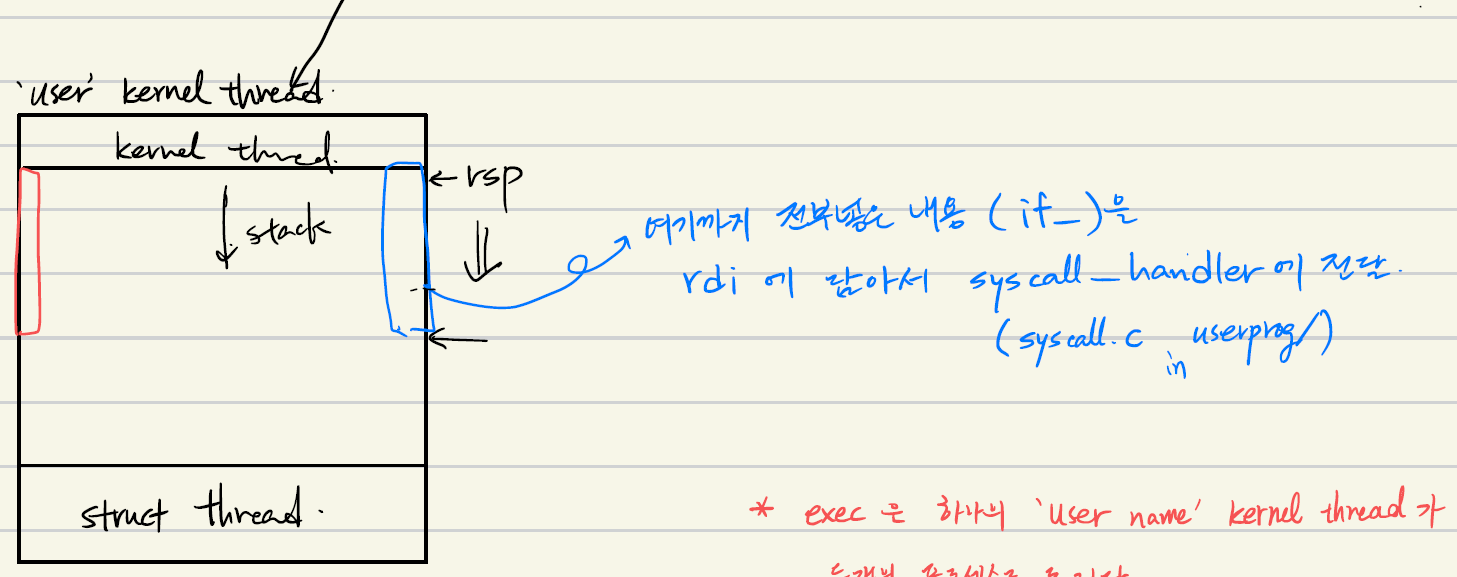 'user' kernel thread.
kernel thred.
← rsp
↓ stack
여기까지 전부넣은 내용 (if_)을
rdi 에 담아서 syscall_handler에 전달.
(syscall.c in userprog/)
struct thread.
* exec 은 하나의 'user name' kernel thread가